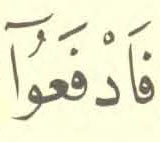 فَادْفَعُوٓا